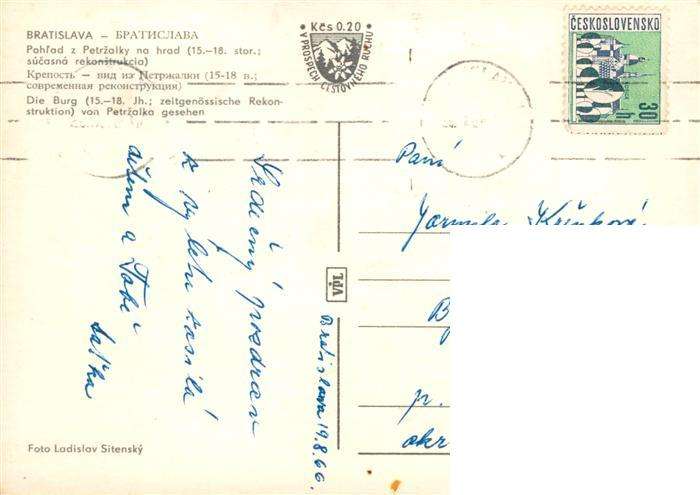 BRATISLAVA – БРАТИСЛАВА
Pohľad z Petržalky na hrad (15.–18. stor.;
súčasná rekonštrukcia)
Крепость – вид из Петржалки (15-18 в.;
современная реконструкция)
Die Burg (15.–18. Jh.; zeitgenössische Rekon-
struktion) von Petržalka gesehen
Kčs 0.20
V PROSPECH CESTOVNÉHO RUCHU
ČESKOSLOVENSKO
30
h
Paní
Jarmila
Srdečný pozdrav
z výletu zasílá
dětem a Tobě
VPL
Bratislava 19.8.66.
p.
okr
Foto Ladislav Sitenský